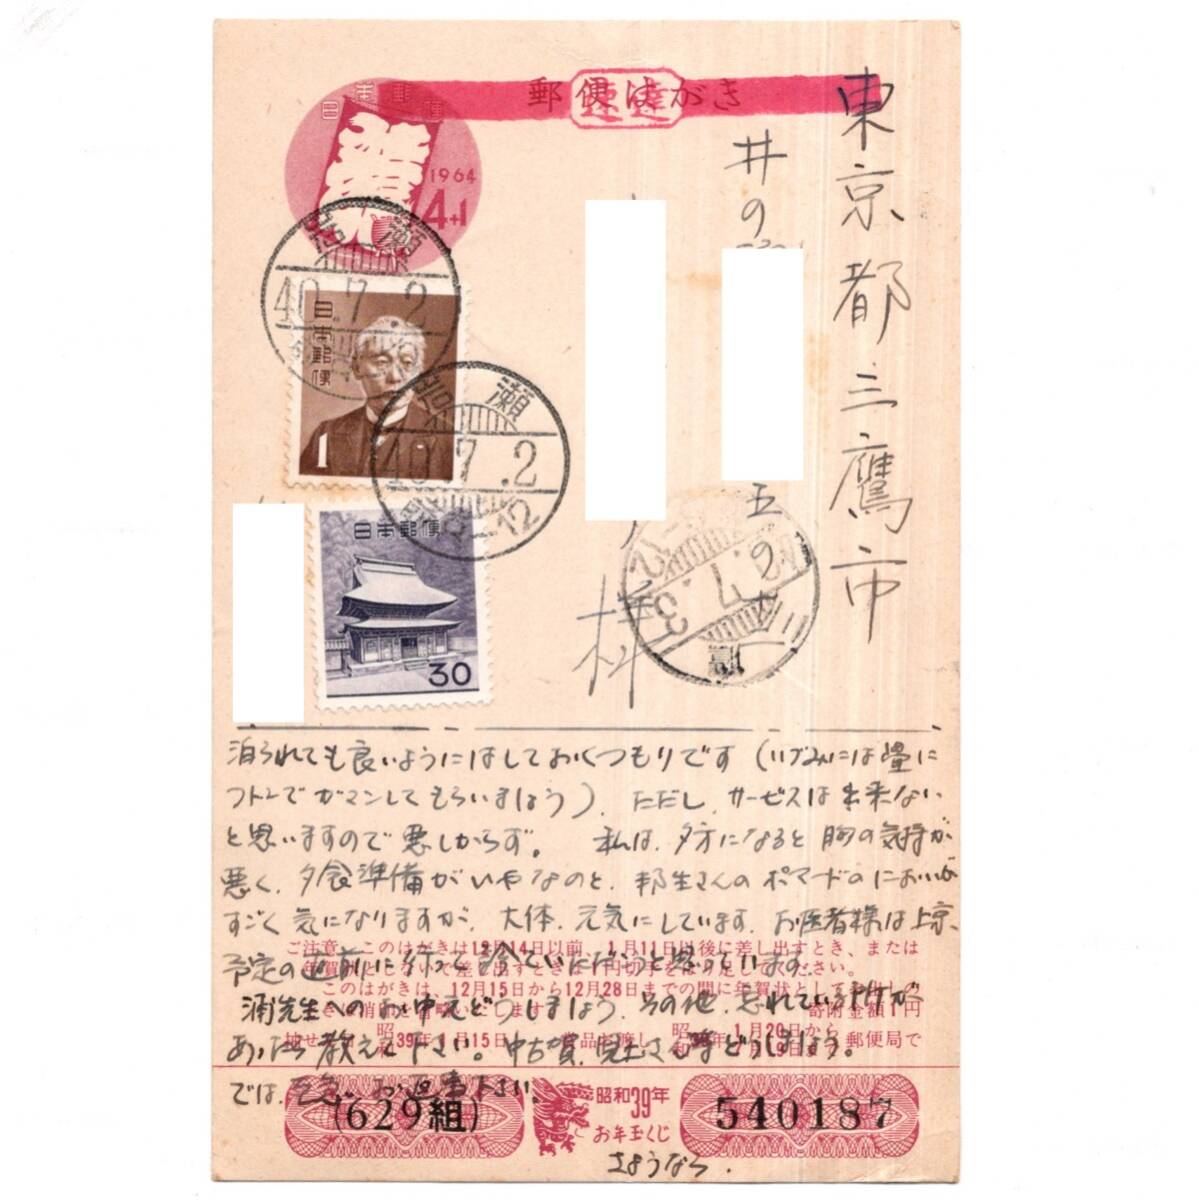 郵便はがき
速達
日本郵便
1964
4+1
東京都三鷹市
井の
五の
様
岩瀬
40.7.2
日本郵便
1
岩瀬
40.7.2
8-12
日本郵便
30
泊られても良いようにはしておくつもりです(いづみには畳に
フトンでガマンしてもらいましょう)、ただし、サービスは出来ない
と思いますので悪しからず。 私は、夕方になると胸の気持が
悪く、夕食準備がいやなのと、邦生さんのポマードのにおいが
すごく気になりますが、大体、元気にしています。お医者様は上京
予定の直前に行って診ていただこうと思っています。
浦先生へのお中元どうしましょう、その他、忘れている所が
あったら教えて下さい。中古賀、見さん等どうしましょう。
では、至急、お返事下さい。
さようなら.
ご注意 このはがきは12月14日以前、1月11日以後に差し出すとき、または
年賀状としないで差し出すときは1円切手をはり足してください。
このはがきは、12月15日から12月28日までの間に年賀状として差し出し
寄附金額1円
昭和39年1月15日
1月20日から
郵便局で
(629組)
昭和39年
お年玉くじ
540187